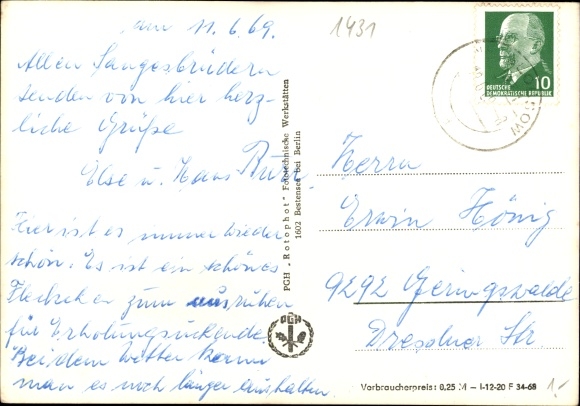 am 11.6.69.
1431
Allen Sangesbrüdern
senden von hier herz-
liche Grüße
Else u. Hans
Hier ist es immer wieder
schön. Es ist ein schönes
Fleckchen zum ausruhen
für Erholungssuchende.
Bei dem Wetter kann
man es noch länger aushalten.
PGH „Rotophot" Fototechnische Werkstätten
1602 Bestensee bei Berlin
PGH
10
DEUTSCHE
DEMOKRATISCHE REPUBLIK
Herrn
Erwin Hönig
9292 Geringswalde
Dresdner Str
Verbraucherpreis: 0,25 M – I-12-20 F 34-68
1.-